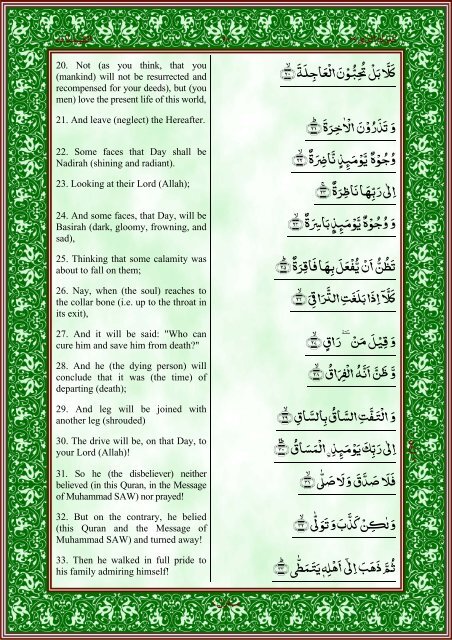 20. Not (as you think, that you
(mankind) will not be resurrected and
recompensed for your deeds), but (you
men) love the present life of this world,
كَلَّا بَلْ تُحِبُّوْنَ الْعَاجِلَةَ ۙ﴿۲۰﴾
21. And leave (neglect) the Hereafter.
وَ تَذَرُوْنَ الْاٰخِرَةَ ؕ﴿۲۱﴾
22. Some faces that Day shall be
Nadirah (shining and radiant).
وُجُوْهٌ يَّوْمَىِٕذٍ نَّاضِرَةٌ ۙ﴿۲۲﴾
23. Looking at their Lord (Allah);
اِلٰى رَبِّهَا نَاظِرَةٌ ۚ﴿۲۳﴾
24. And some faces, that Day, will be
Basirah (dark, gloomy, frowning, and
sad),
وَ وُجُوْهٌ يَّوْمَىِٕذٍۭ بَاسِرَةٌ ۙ﴿۲۴﴾
25. Thinking that some calamity was
about to fall on them;
تَظُنُّ اَنْ يُّفْعَلَ بِهَا فَاقِرَةٌ ؕ﴿۲۵﴾
26. Nay, when (the soul) reaches to
the collar bone (i.e. up to the throat in
its exit),
كَلَّاۤ اِذَا بَلَغَتِ التَّرَاقِيَ ۙ﴿۲۶﴾
27. And it will be said: "Who can
cure him and save him from death?"
وَ قِيْلَ مَنْ ٚ رَاقٍ ۙ﴿۲۷﴾
28. And he (the dying person) will
conclude that it was (the time) of
departing (death);
وَّ ظَنَّ اَنَّهُ الْفِرَاقُ ۙ﴿۲۸﴾
29. And leg will be joined with
another leg (shrouded)
وَ الْتَفَّتِ السَّاقُ بِالسَّاقِ ۙ﴿۲۹﴾
30. The drive will be, on that Day, to
your Lord (Allah)!
اِلٰى رَبِّكَ يَوْمَىِٕذِ ۨالْمَسَاقُ ؕ﴿۳۰﴾
31. So he (the disbeliever) neither
believed (in this Quran, in the Message
of Muhammad SAW) nor prayed!
فَلَا صَدَّقَ وَ لَا صَلّٰى ۙ﴿۳۱﴾
32. But on the contrary, he belied
(this Quran and the Message of
Muhammad SAW) and turned away!
وَ لٰكِنْ كَذَّبَ وَ تَوَلّٰى ۙ﴿۳۲﴾
33. Then he walked in full pride to
his family admiring himself!
ثُمَّ ذَهَبَ اِلٰۤى اَهْلِهٖ يَتَمَطّٰى ؕ﴿۳۳﴾